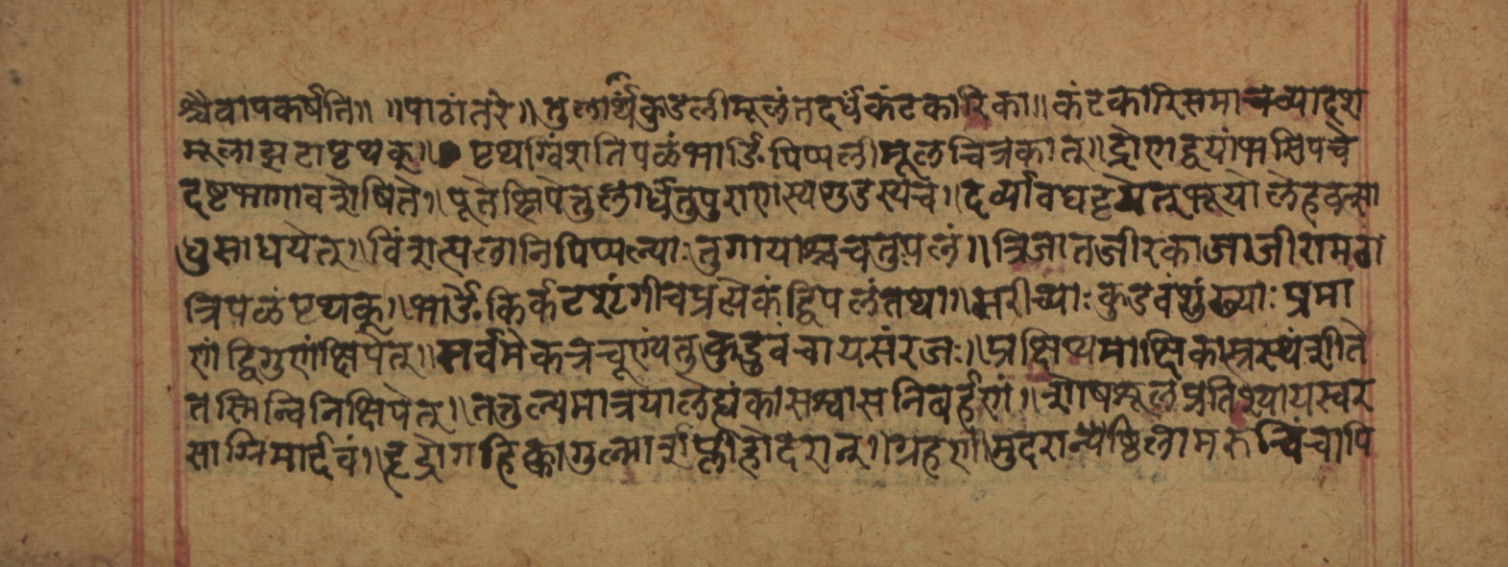 श्चैवापकर्षति॥ ॥पाठांतरे॥ तुलार्थं कुडलीमूलं तदर्धं कंटकारिका॥ कंटकारिसमा चव्यादश
मूलाझटा पृथक्॥ पृथग्विंशतिपळं भार्ङीपिप्पलीमूलचित्रकात्॥ द्रोणद्वयांभसि पचे
दष्टभागावशेषिते॥ पूते क्षिपेत्तुलार्धं तु पुराणस्य गुडस्य च॥ दर्व्यावघट्टयेत् भूयो लेहवत्सा
धु साधयेत्॥ विंशत्पलानि पिप्पल्याः तुगायाश्च चतुपलं॥ त्रिजातजीरकाजाजीरामठा
त्रिपळं पृथक्॥ भार्ङी कर्कटशृंगी च प्रत्येकं द्विपलं तथा॥ मरीच्याः कुडवं शुंठ्याः प्रमा
णं द्विगुणं क्षिपेत्॥ सर्वमेकत्र चूर्णं तु कुडुवं चायसं रजः॥ प्रक्षिप्य माक्षिकात्प्रस्थं शीते
तस्मिन्विनिक्षिपेत्॥ तत्तुल्यमात्रया लेह्यं कासश्वासनिबर्हणं॥ शोषशूलप्रतिश्यायस्वर
साग्निमार्दवं॥ हृद्रोगहिक्कागुल्मार्शप्लीहोदरान्॥ ग्रहणीमुदरान्यष्ठिलामरुन्विंचापि